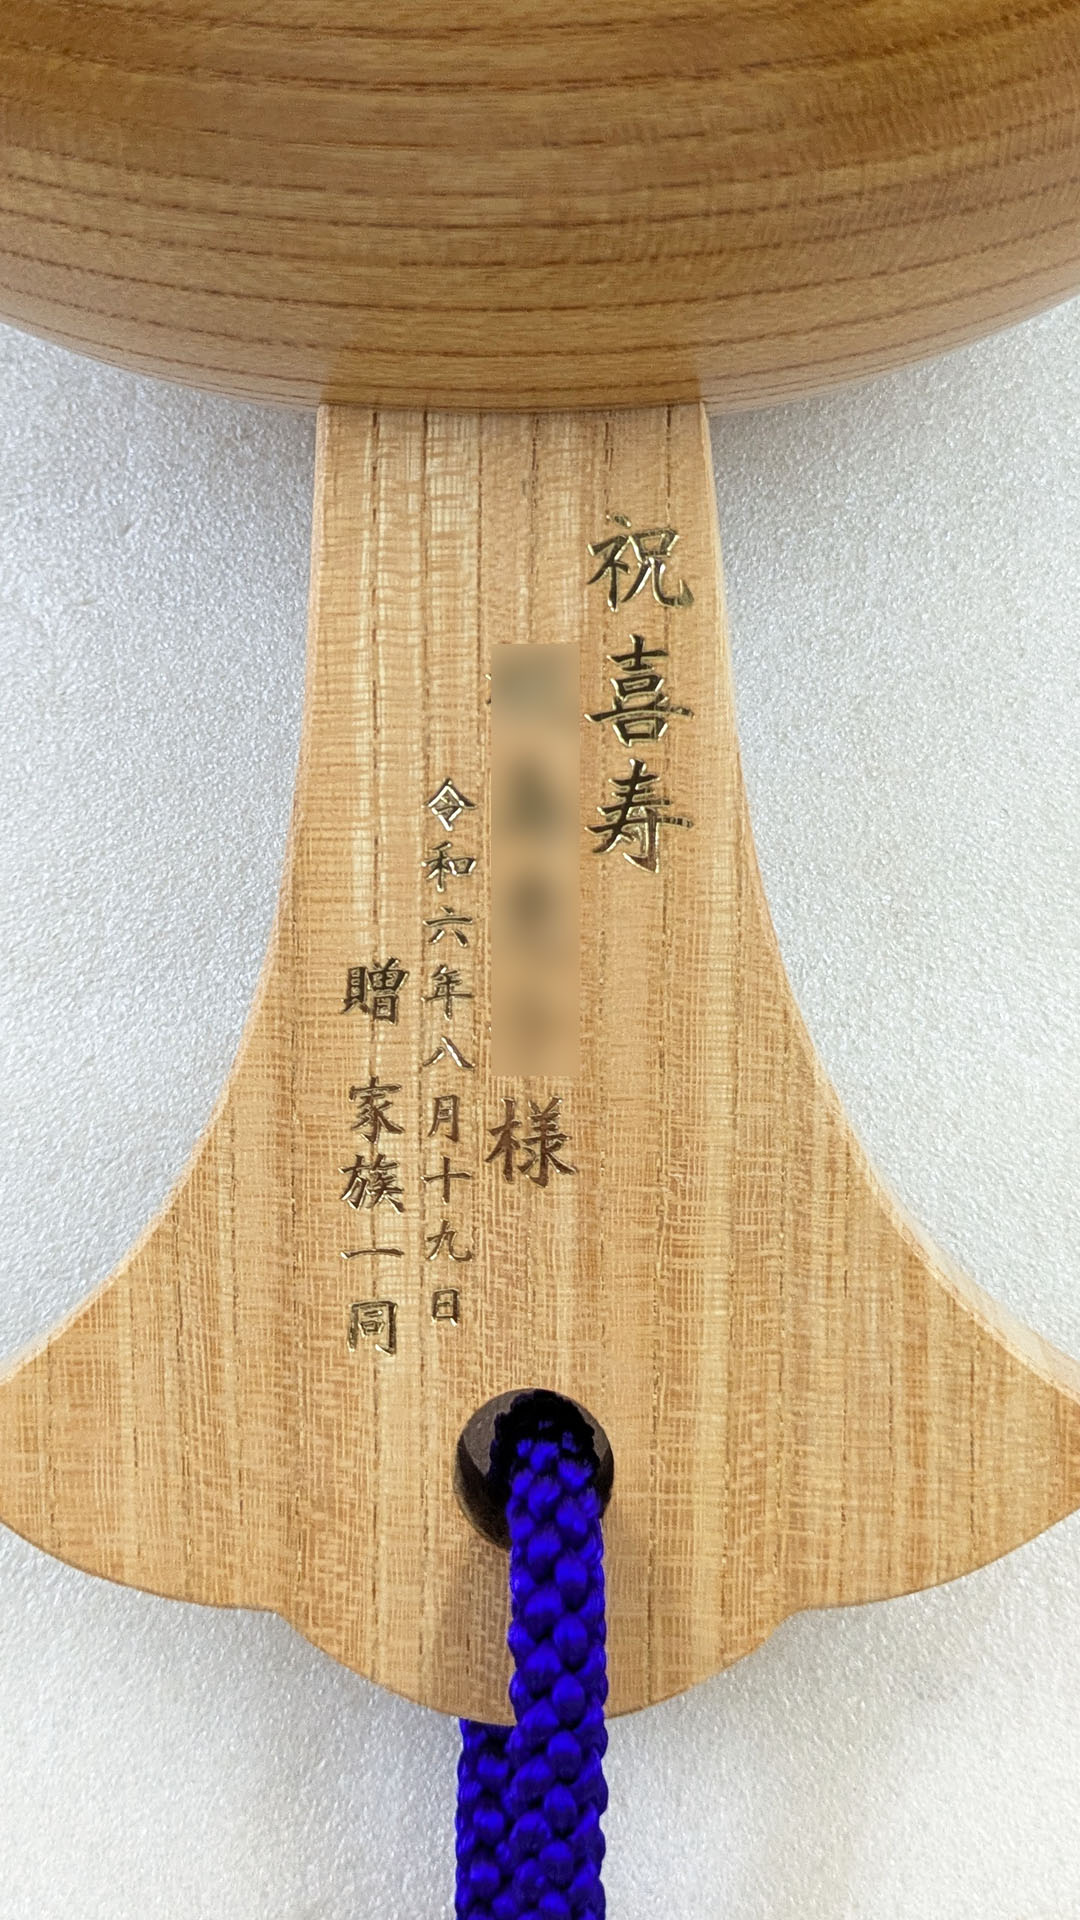 祝 喜寿
様
令和六年八月十九日
贈 家族一同